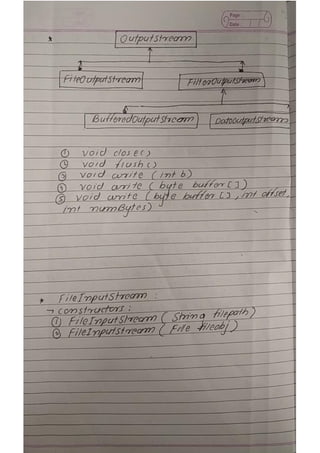 Page :
Date :
OutputStream
FileOutputStream FilterOutputStream
BufferedOutputStream DataOutputStream
① void close()
② void flush()
③ void write (int b)
④ void write (byte buffer[])
⑤ void write (byte buffer [], int offset,
int numBytes)
* FileInputStream :
→ constructors :
① FileInputStream (String filepath)
② FileInputStream (File fileobj)